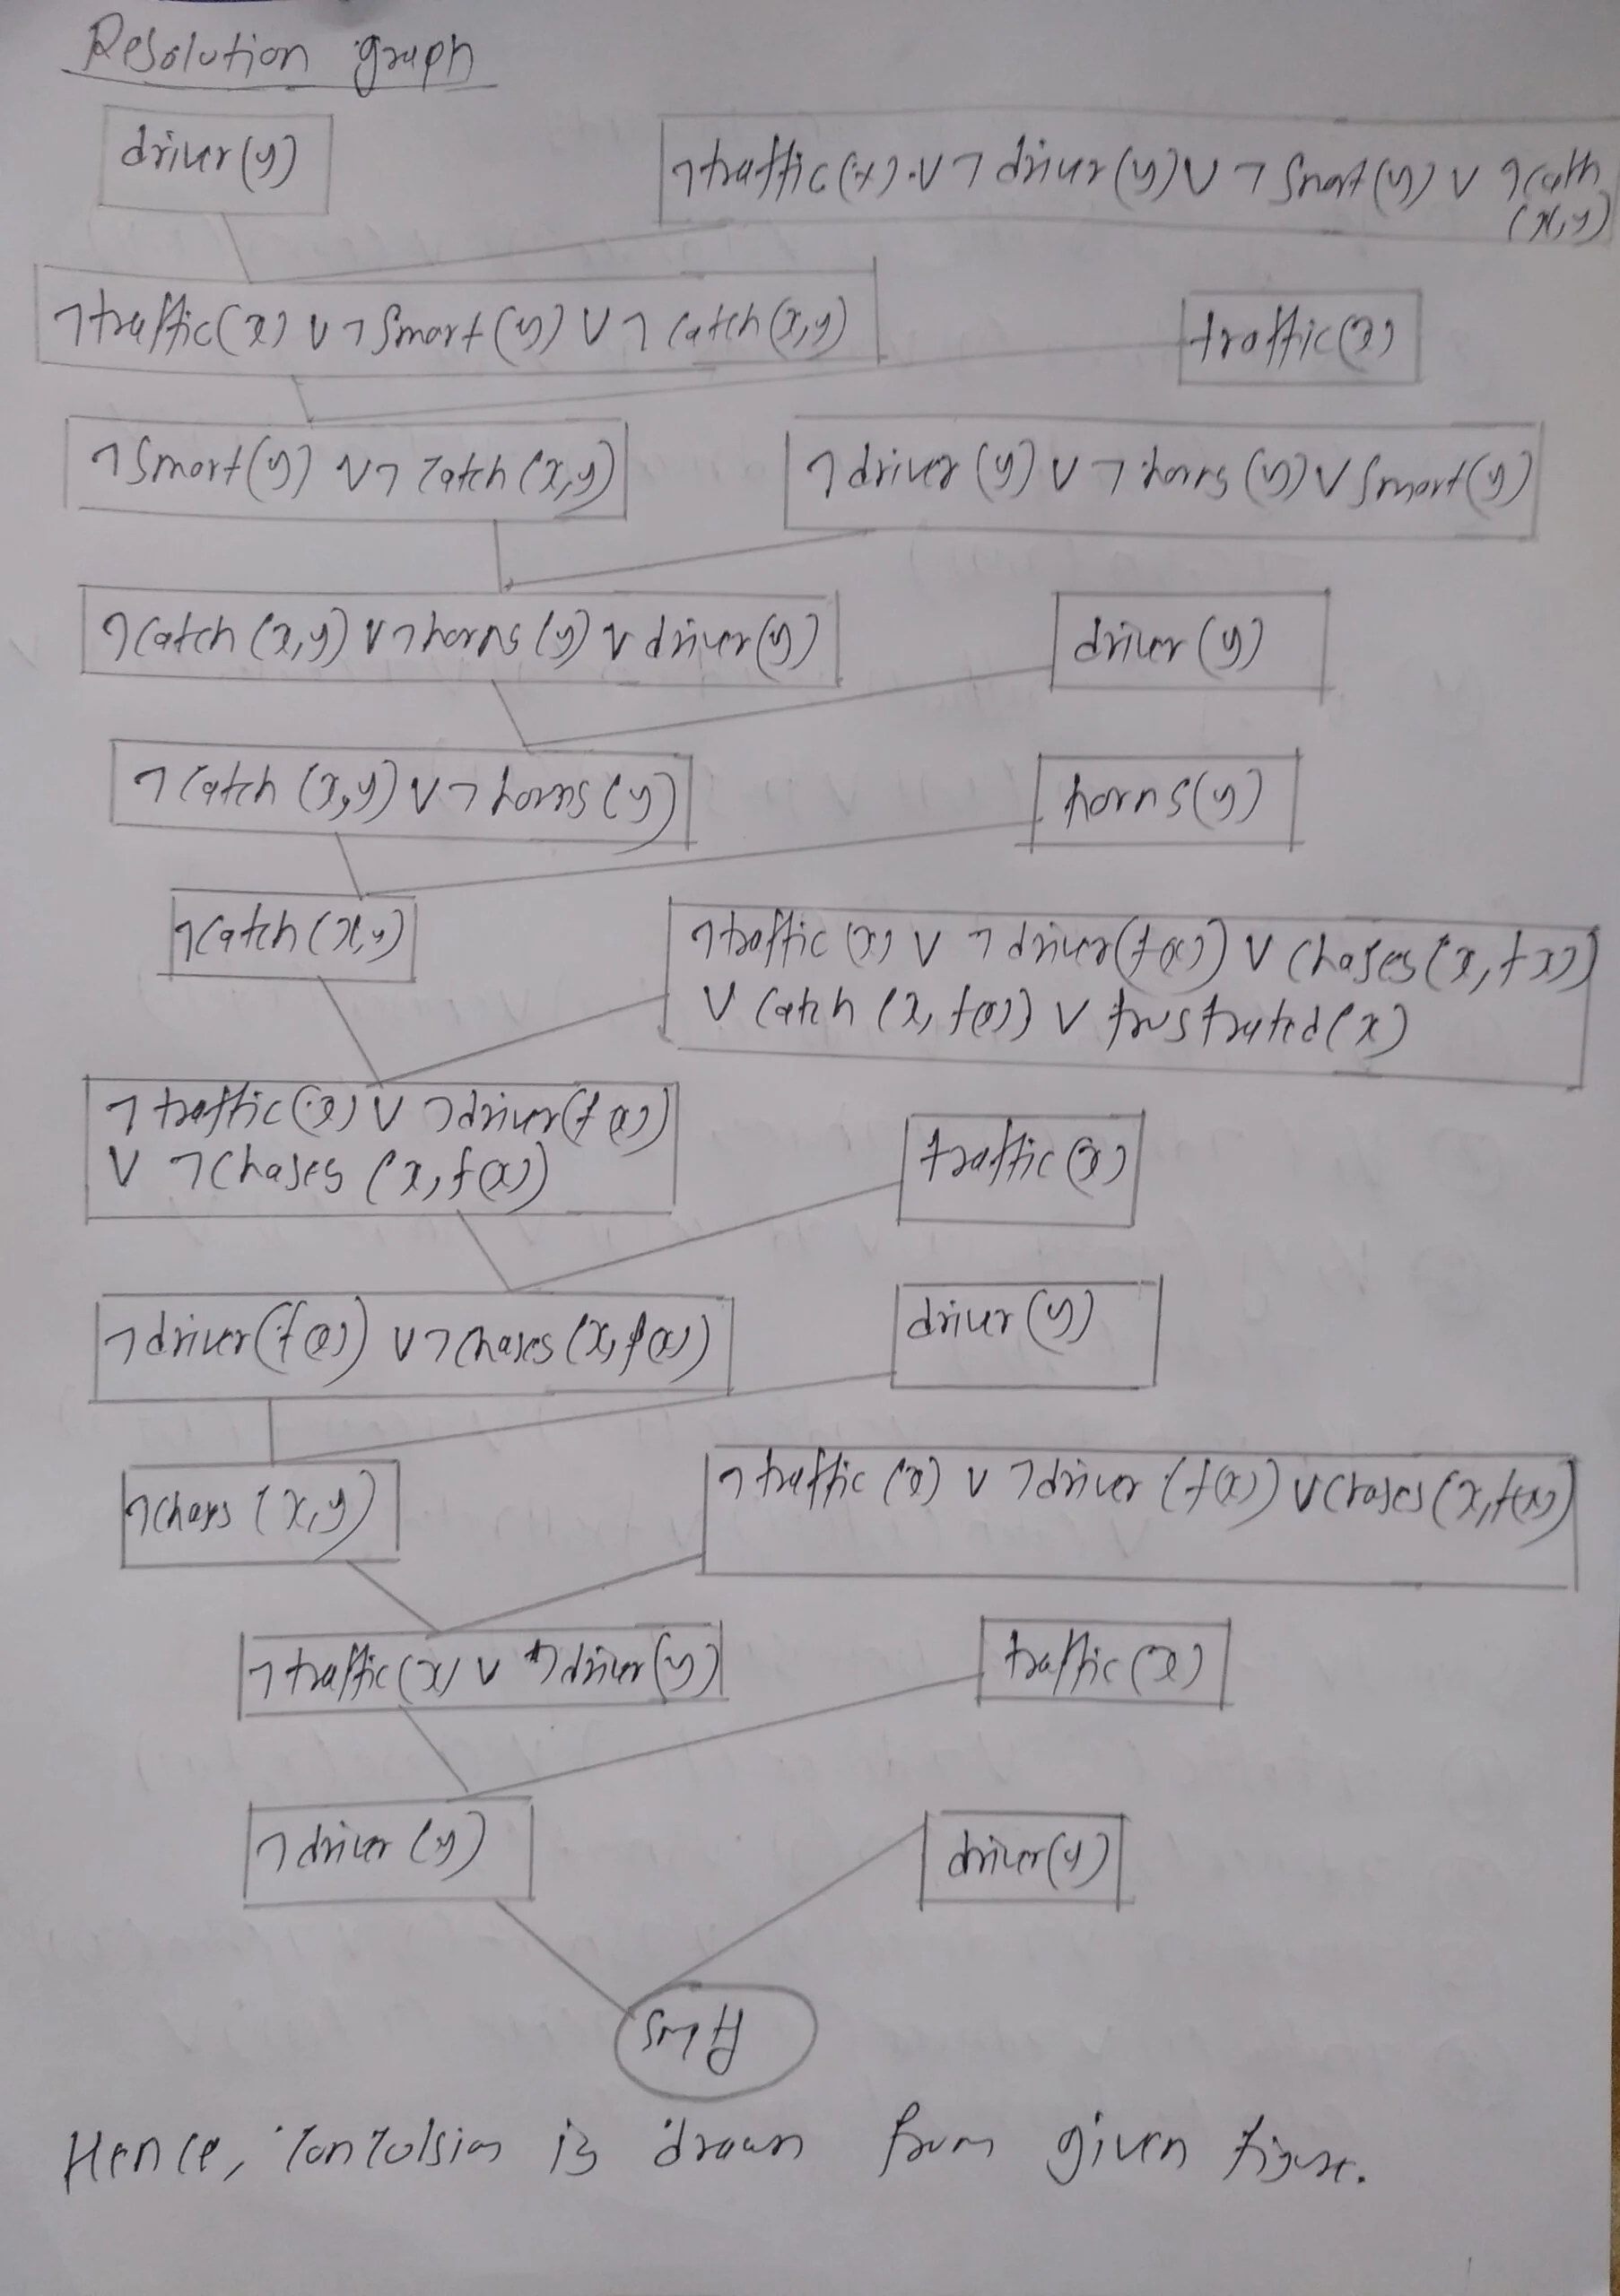 Resolution graph
driver(y)
¬traffic(x) ∨ ¬driver(y) ∨ ¬Smart(y) ∨ ¬cath
(x,y)
¬traffic(x) ∨ ¬Smart(y) ∨ ¬catch(x,y)
traffic(x)
¬Smart(y) ∨ ¬catch(x,y)
¬driver(y) ∨ ¬horns(y) ∨ Smart(y)
¬catch(x,y) ∨ ¬horns(y) ∨ driver(y)
driver(y)
¬catch(x,y) ∨ ¬horns(y)
horns(y)
¬catch(x,y)
¬traffic(x) ∨ ¬driver(f(x)) ∨ chases(x,fx))
∨ catch(x,f(x)) ∨ frustrated(x)
¬traffic(x) ∨ ¬driver(f(x))
∨ ¬chases(x,f(x))
traffic(x)
¬driver(f(x)) ∨ ¬chases(x,f(x))
driver(y)
¬chays(x,y)
¬traffic(x) ∨ ¬driver(f(x)) ∨ chases(x,f(x))
¬traffic(x) ∨ ¬driver(y)
traffic(x)
¬driver(y)
driver(y)
Hence, is drawn from given figure.